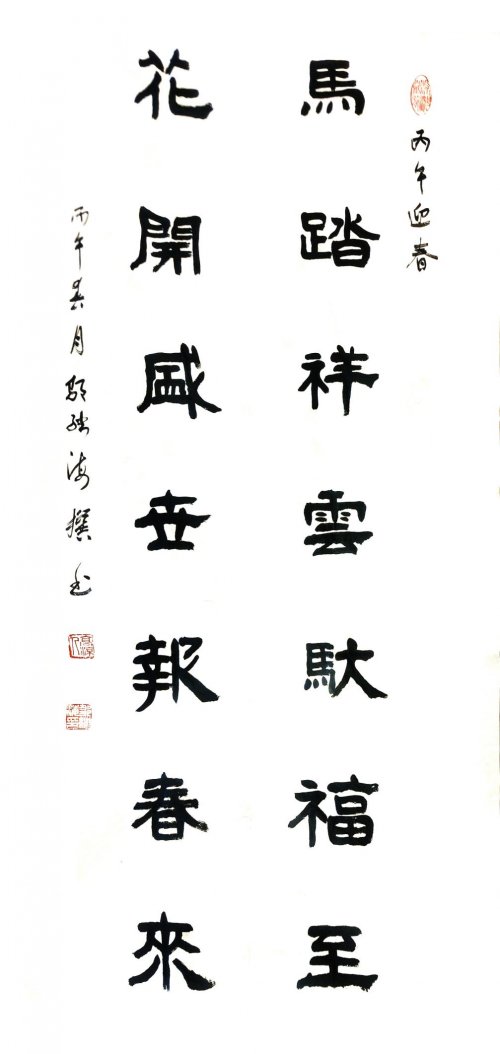 丙午迎春
馬踏祥雲馱福至
花開盛世報春來
丙午春月 海撰书